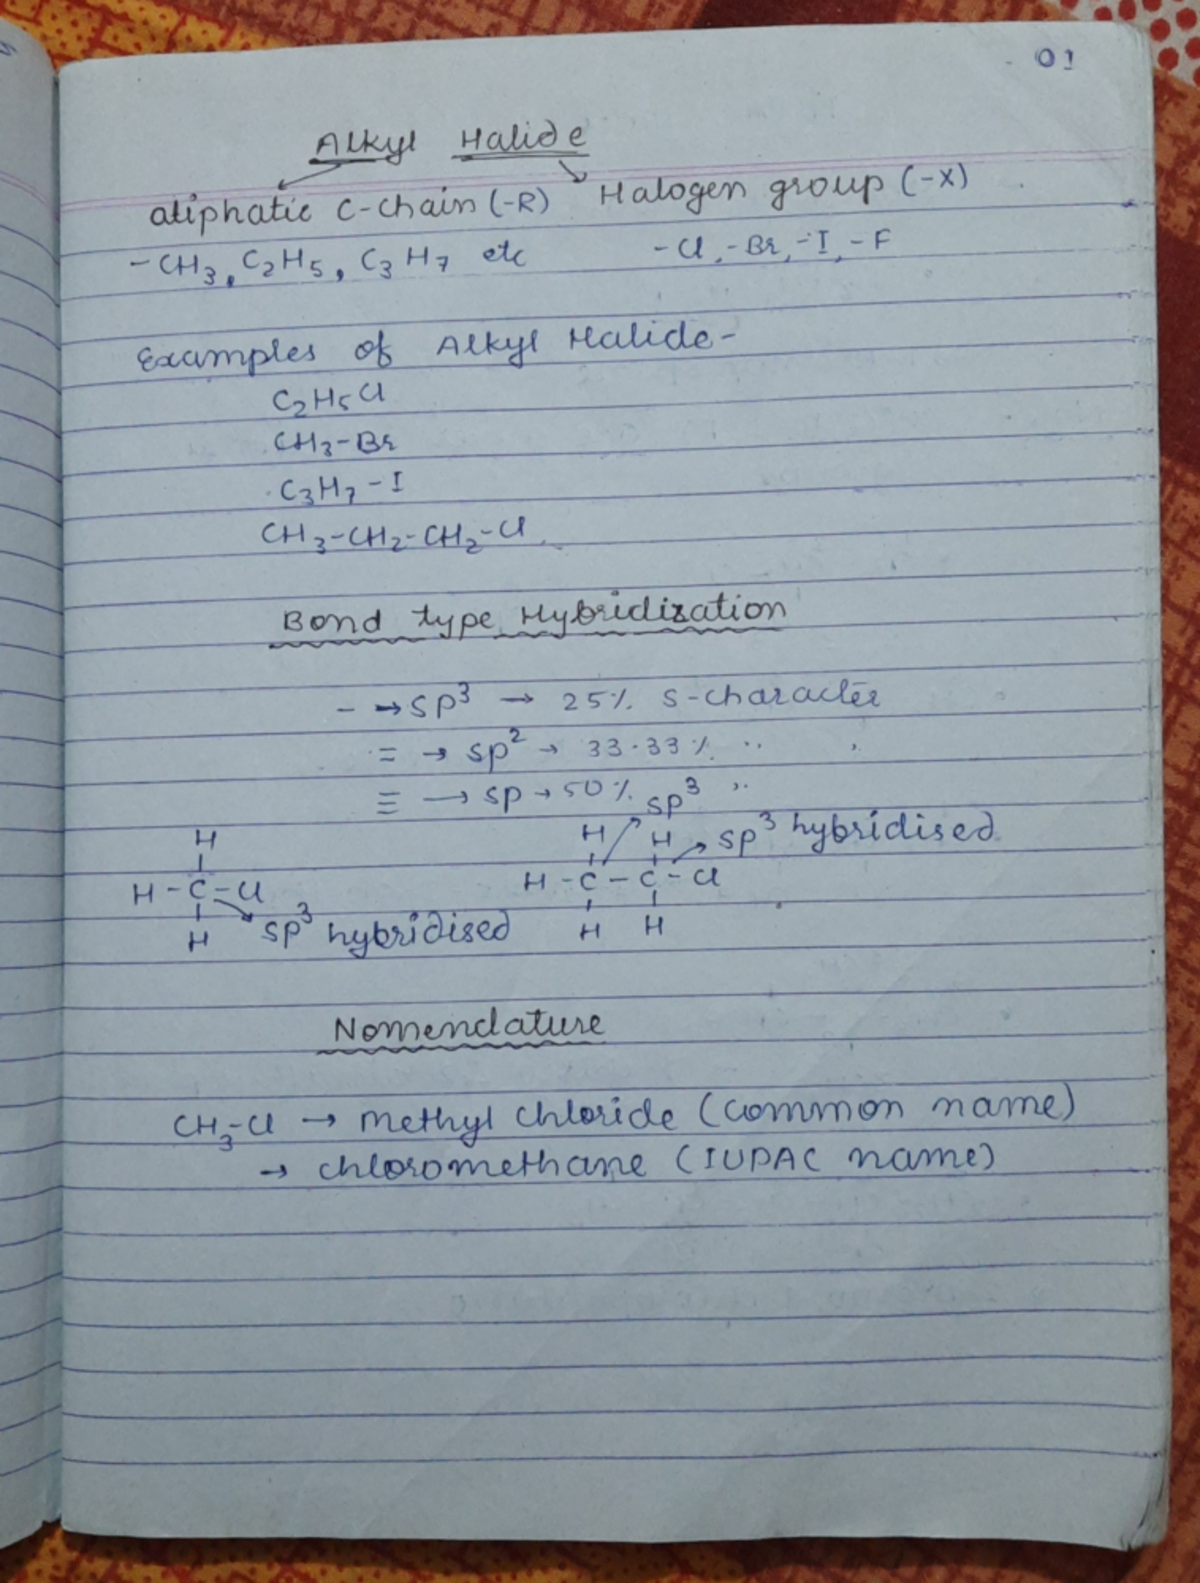 01
Alkyl Halide
aliphatic C-chain (-R) Halogen group (-X)
-CH₃, C₂H₅, C₃H₇ etc -Cl, -Br, -I, -F
Examples of Alkyl Halide-
C₂H₅Cl
CH₃-Br
C₃H₇-I
CH₃-CH₂-CH₂-Cl
Bond type Hybridization
- → sp³ → 25% s-character
= → sp² → 33.33% ,,
≡ → sp → 50% ,,
sp³
H H H sp³ hybridised
H-C-Cl H-C-C-Cl
H sp³ hybridised H H
Nomenclature
CH₃-Cl → Methyl chloride (common name)
→ chloromethane (IUPAC name)